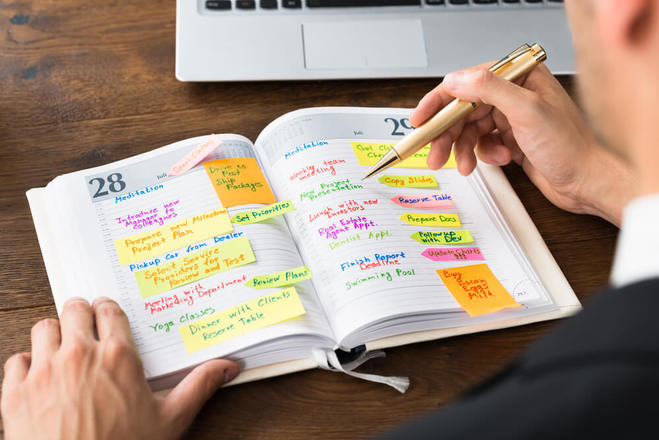 28
Juli
Meditation
Drive to
Post
Ship
Packages
Introduce new
to
colleagues
Set Priorities
Prepare new Milestone
Project Plan
Pickup Car from Dealer
Select Service
Providers for
Review and Test
Review Plans
Meeting with
Marketing Department
Yoga Classes
Dinner with Clients
Reserve Table
29
Juli
Meditation
Weekly team
meeting
Copy Slides
New Project
Presentation
Reserve Table
Lunch with new
Investors
Prepare Docs
Real Estate
Agent Appt.
Follow up
with Dev
Dentist Appt.
Update Charts
Finish Report
Deadline
Swimming Pool
Buy
Bacon
Eggs
Milk